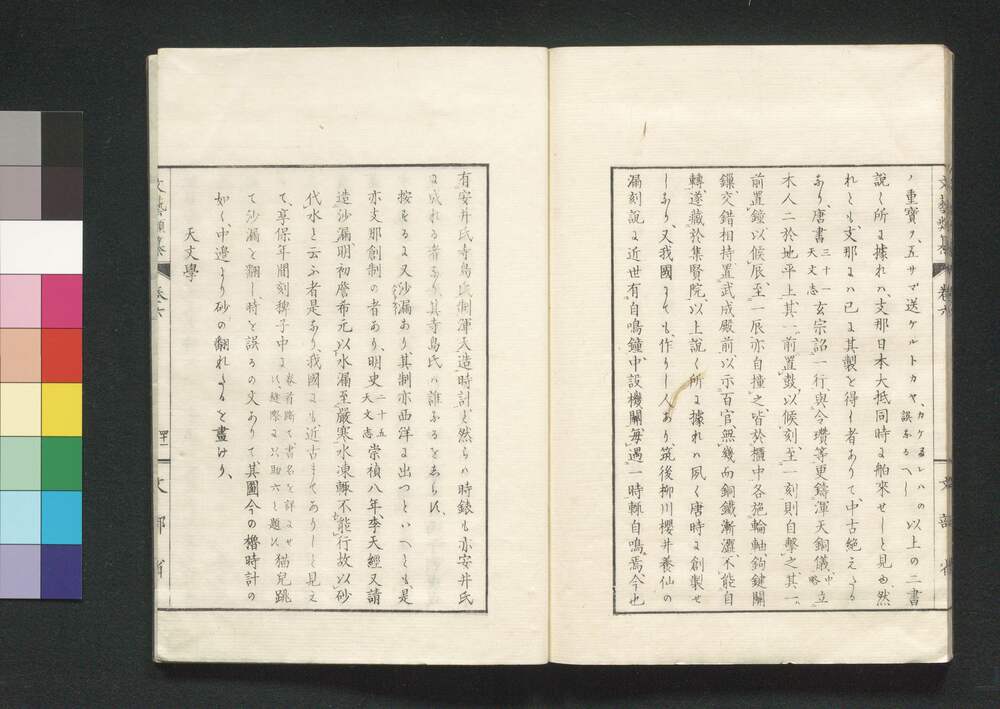 ノ重寶ヲ、五サマデ送ケルトカヤ、カケヨレハの誤なるへし以上の二書
説く所に據れハ、支那日本大抵同時に舶來せしと見ゆ、然
れとも、支那にハ已に其製を得し者ありて、中古絶えたる
あり、唐書三十一天文志玄宗詔一行、與令瓚等更鑄渾天銅儀、中略立
木人二於地平上、其一前置鼓、以候刻、至一刻則自擊之、其一
前置鐘、以候辰、至一辰亦自撞之、皆於櫃中各施輪軸、鉤鍵關
鏁、交錯相持、置武成殿前、以示百官、無幾而銅鐵漸澀、不能自
轉、遂藏於集賢院、以上説く所に據れハ夙く唐時に創製せ
しあり、又我國にても、作りし人あり、筑後柳川櫻井養仙の
漏刻説に近世有自鳴鐘、中設機關、毎遇一時輙自鳴焉、今也
文藝類纂 卷六 文部省
有安井氏寺島氏制渾天造時計と然らハ時錶も亦安井氏
に成れる者なり其寺島氏ハ誰なるを志らす、
按するに又沙漏あり其制亦西洋に出つといへとも、是
亦支那創制の者あり、明史二十五天文志崇禎八年、李天經又請
造沙漏、明初詹希元以水漏至嚴寒水凍輙不能行、故以砂
代水と云ふ者是なり、我國にも近古までありしと見え
て、享保年間刻稗子中に表首に書名を詳にせす縫際に只助六と題す猫兒跳
て沙漏を翻し、時を誤るの文ありて其圖今の櫓時計の
如く、中邊より砂の翻れたるを畫けり、
天文學
文藝類纂 卷六 文部省